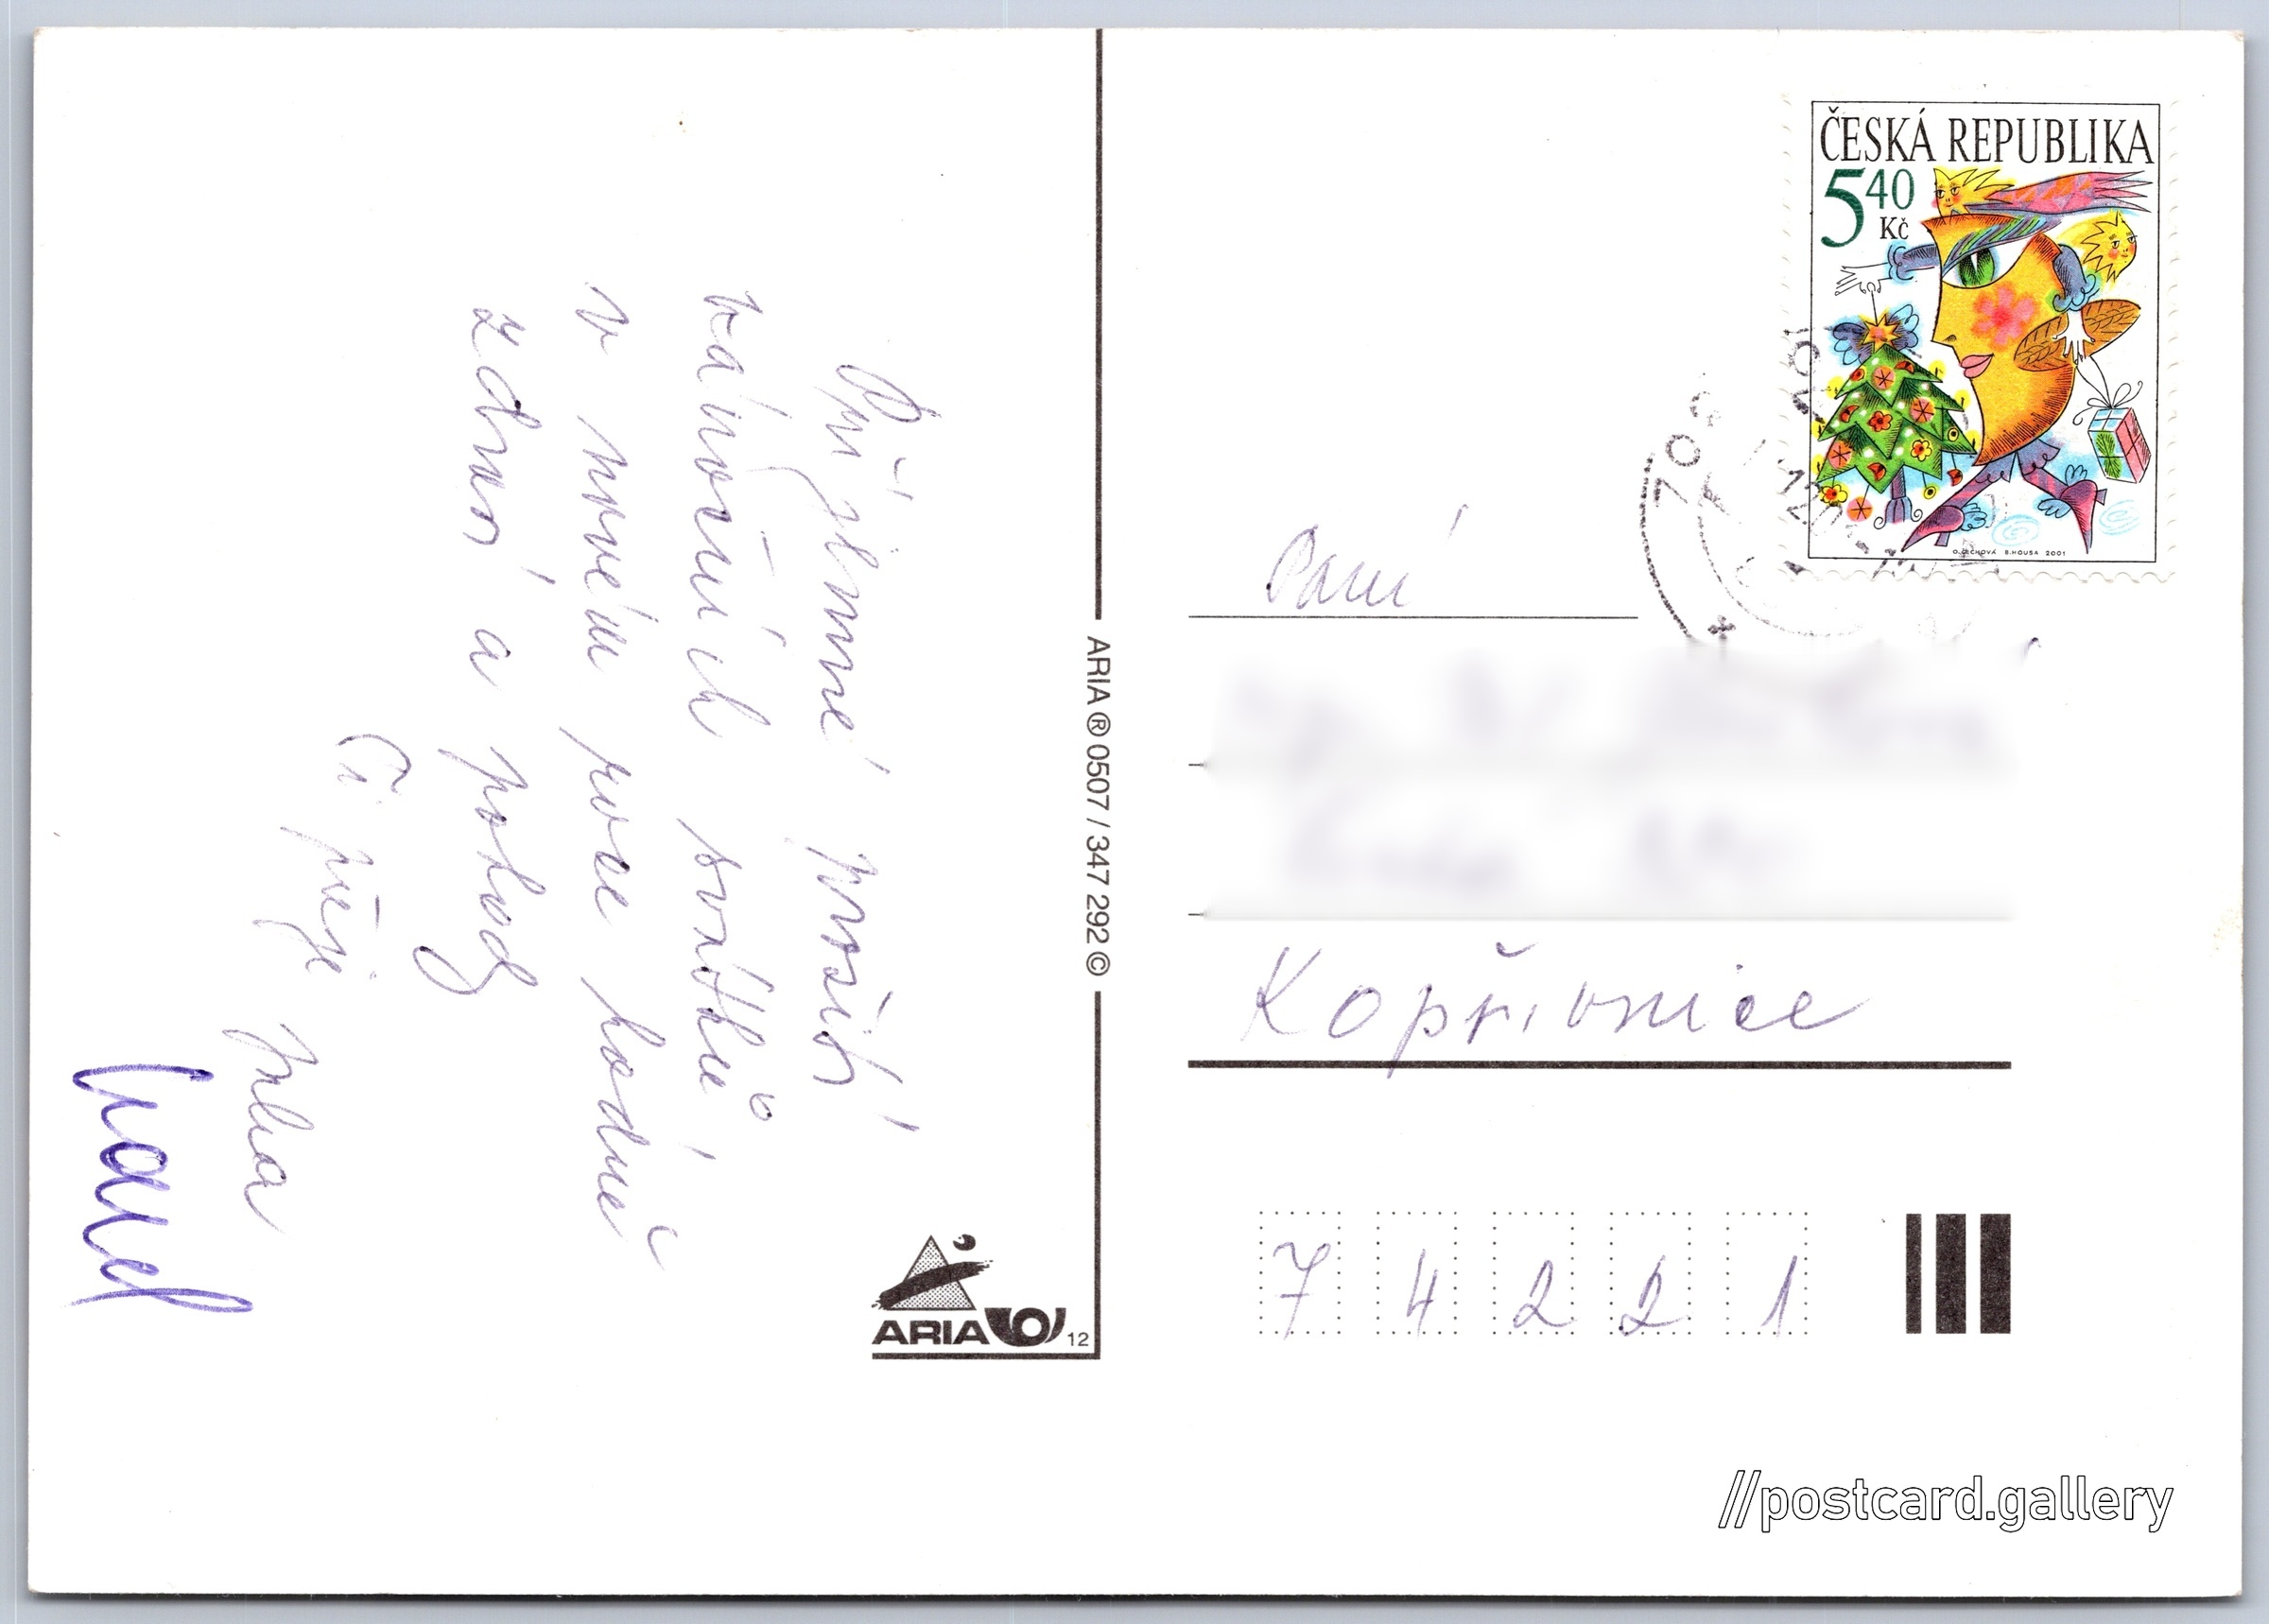 Příjemné prožití
vánočních svátků,
v novém roce hodně
zdraví a pohody
Ti přeje
ARIA ® 0507 / 347 292 ©
ARIA
12
ČESKÁ REPUBLIKA
5 40
Kč
O. ČECHOVÁ B. HOUSA 2001
Paní
Kopřivnice
7 4 2 2 1
//postcard.gallery